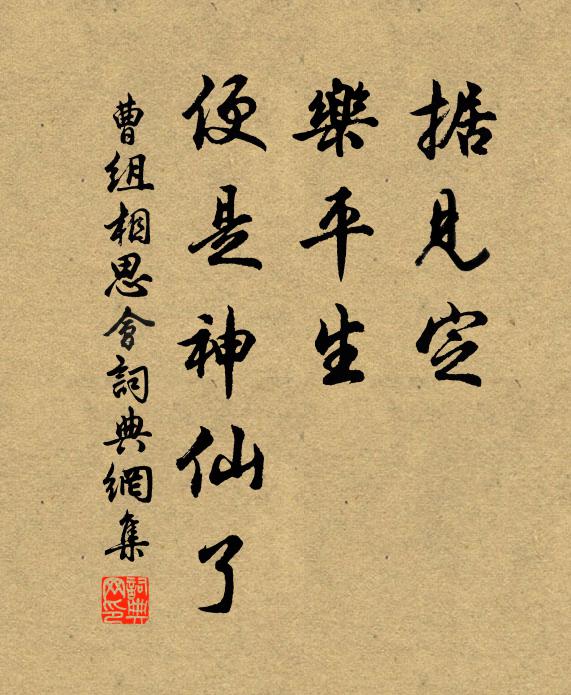 据見定
樂平生
便是神仙了
曹組相思會詞典網集
詞典网印